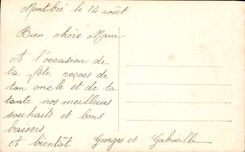 Montbré le 14 août
Bien chère Marie
A l'occasion de
la fête reçois de
ton oncle et de la
tante nos meilleurs
souhaits et bons
baisers
A bientôt Georges et Gabrielle